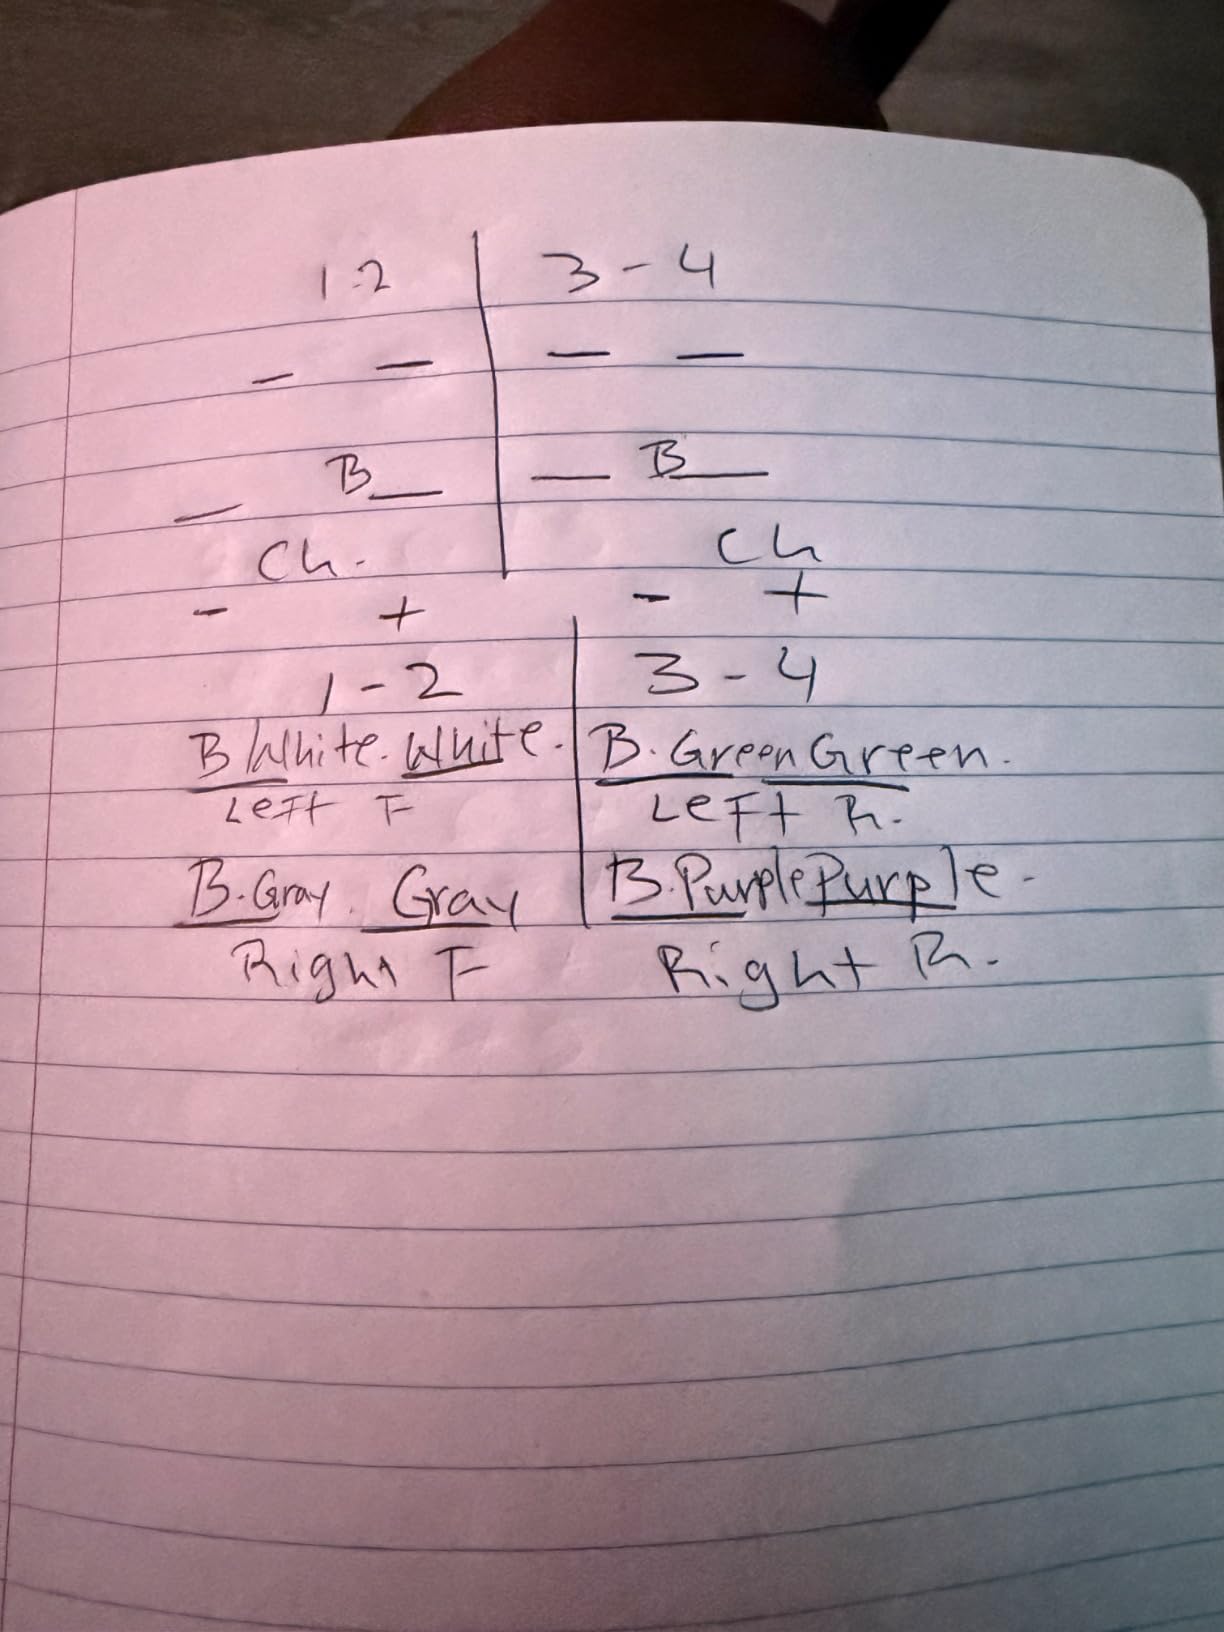 1-2 3-4
— — — —
— B— — B—
Ch. Ch
- + - +
1-2 3-4
B White. White. B. Green Green.
Left F Left R.
B. Gray. Gray B. Purple Purple.
Right F Right R.